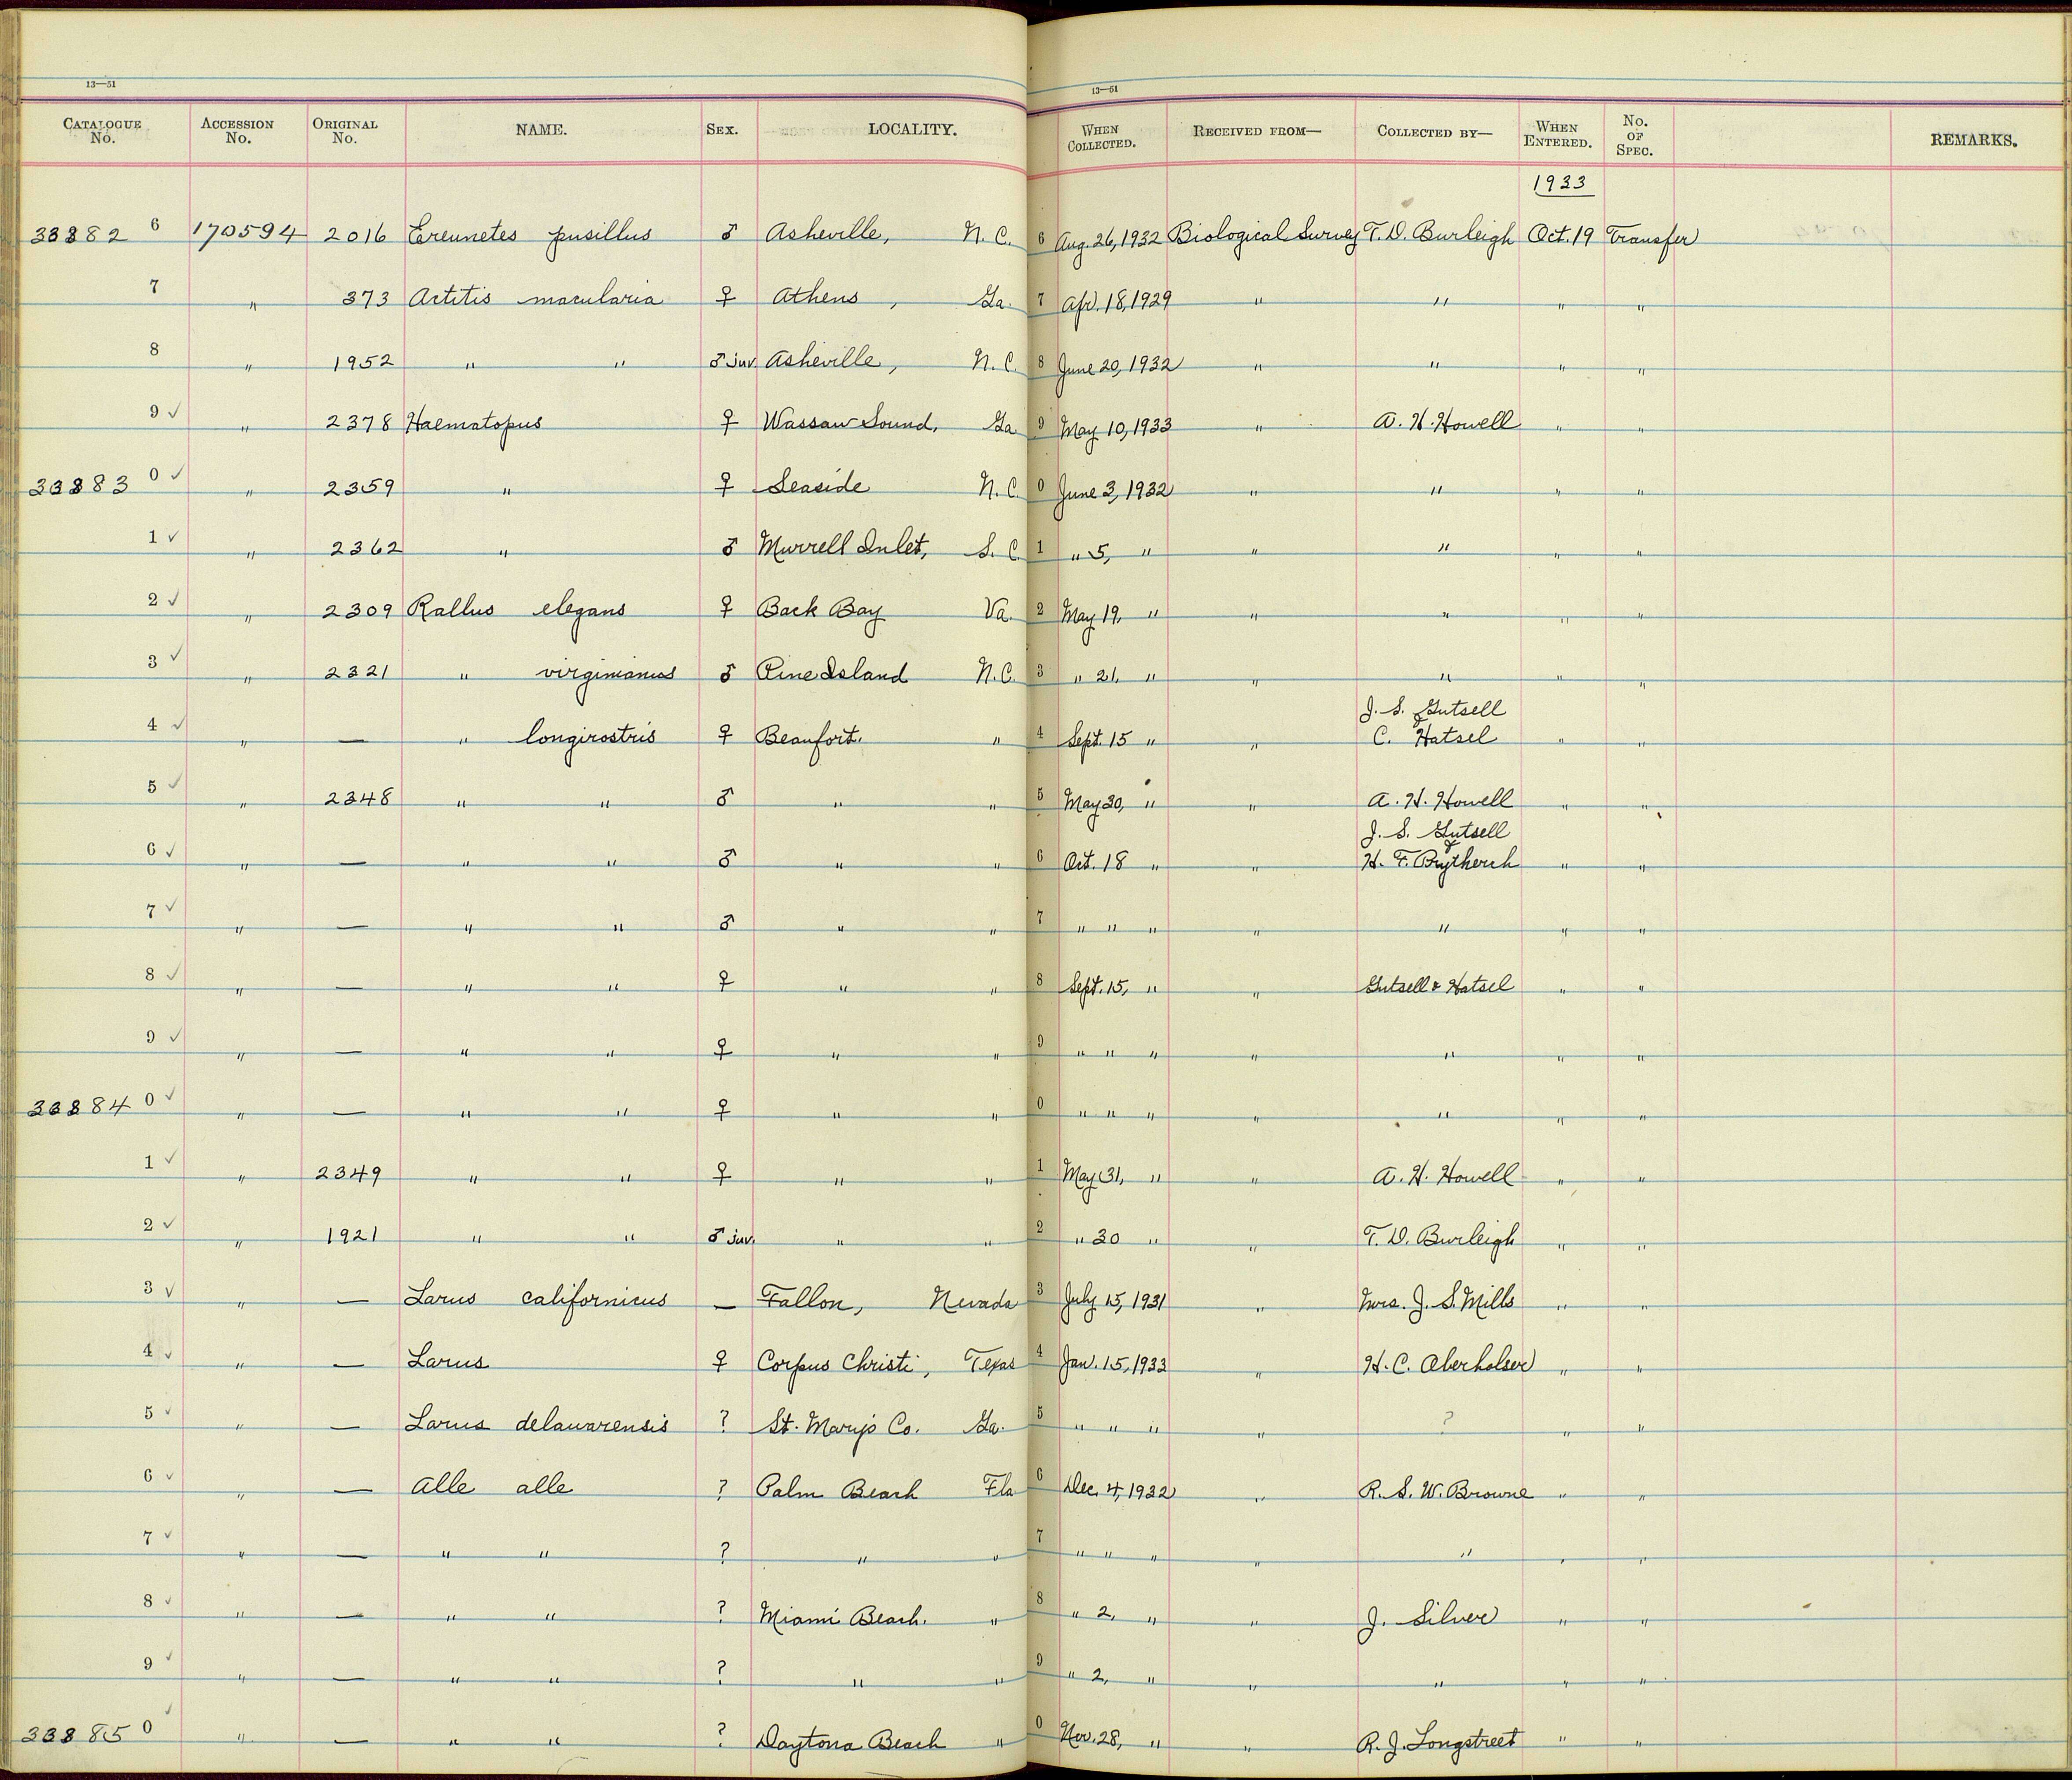 13—51 13—51
CATALOGUE No. ACCESSION No. ORIGINAL No. NAME. SEX. LOCALITY. WHEN COLLECTED. RECEIVED FROM— COLLECTED BY— WHEN ENTERED. No. OF SPEC. REMARKS.
1933
33882 6 170594 2016 Ereunetes pusillus ♂ Asheville, N. C. 6 Aug. 26, 1932 Biological Survey T. D. Burleigh Oct. 19 Transfer
7 " 373 Actitis macularia ♀ Athens, Ga. 7 Apr. 18, 1929 " " " "
8 " 1952 " " ♂ juv. Asheville, N. C. 8 June 20, 1932 " " " "
9 ✓ " 2378 Haematopus ♀ Wassaw Sound, Ga. 9 May 10, 1933 " A. H. Howell " "
33883 0 ✓ " 2359 " ♀ Seaside N. C. 0 June 3, 1932 " " " "
1 ✓ " 2362 " ♂ Murrell Inlet, S. C. 1 " 5, " " " " "
2 ✓ " 2309 Rallus elegans ♀ Back Bay Va. 2 May 19, " " " " "
3 ✓ " 2321 " virginianus ♂ Pine Island N. C. 3 " 21, " " " " "
4 ✓ " — " longirostris ♀ Beaufort. " 4 Sept. 15 " " J. S. Gutsell & C. Hatsel " "
5 ✓ " 2348 " " ♂ " " 5 May 30, " " A. H. Howell " "
6 ✓ " — " " ♂ " " 6 Oct. 18 " " J. S. Gutsell & H. F. Prytherch " "
7 ✓ " — " " ♂ " " 7 " " " " " " "
8 ✓ " — " " ♀ " " 8 Sept. 15, " " Gutsell & Hatsel " "
9 ✓ " — " " ♀ " " 9 " " " " " " "
33884 0 ✓ " — " " ♀ " " 0 " " " " " " "
1 ✓ " 2349 " " ♀ " " 1 May 31, " " A. H. Howell " "
2 ✓ " 1921 " " ♂ juv. " " 2 " 30 " " T. D. Burleigh " "
3 ✓ " — Larus californicus — Fallon, Nevada 3 July 15, 1931 " Mrs. J. S. Mills " "
4 ✓ " — Larus ♀ Corpus Christi, Texas 4 Jan. 15, 1933 " H. C. Oberholser " "
5 ✓ " — Larus delawarensis ? St. Marys Co. Ga. 5 " " " " ? " "
6 ✓ " — Alle alle ? Palm Beach Fla 6 Dec. 4, 1932 " R. S. W. Browne " "
7 ✓ " — " " ? " " 7 " " " " " " "
8 ✓ " — " " ? Miami Beach. " 8 " 2, " " J. Silver " "
9 ✓ " — " " ? " " 9 " 2, " " " " "
33885 0 ✓ " — " " ? Daytona Beach " 0 Nov. 28, " " R. J. Longstreet " "